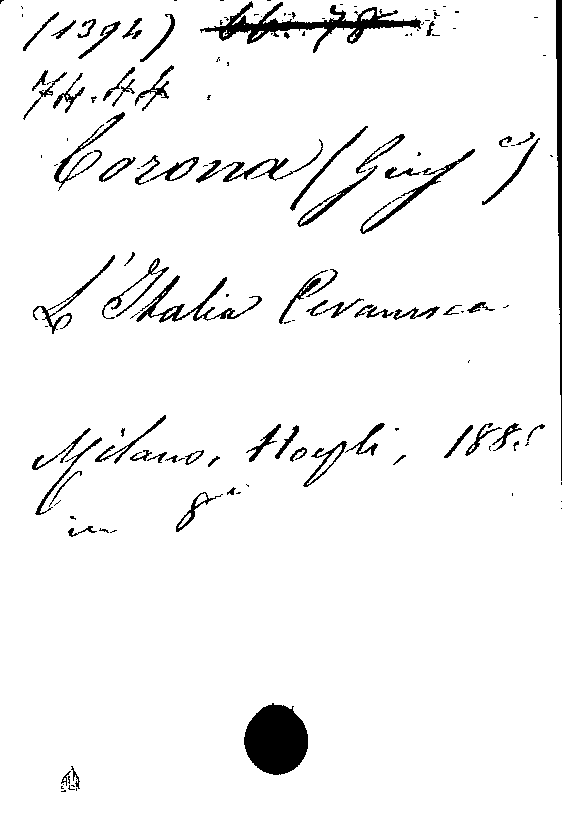 (1394) 66. 78
74.44
Corona (Giuse)
L'Italia Ceramica
Milano, Hoepli, 1885
in 8º